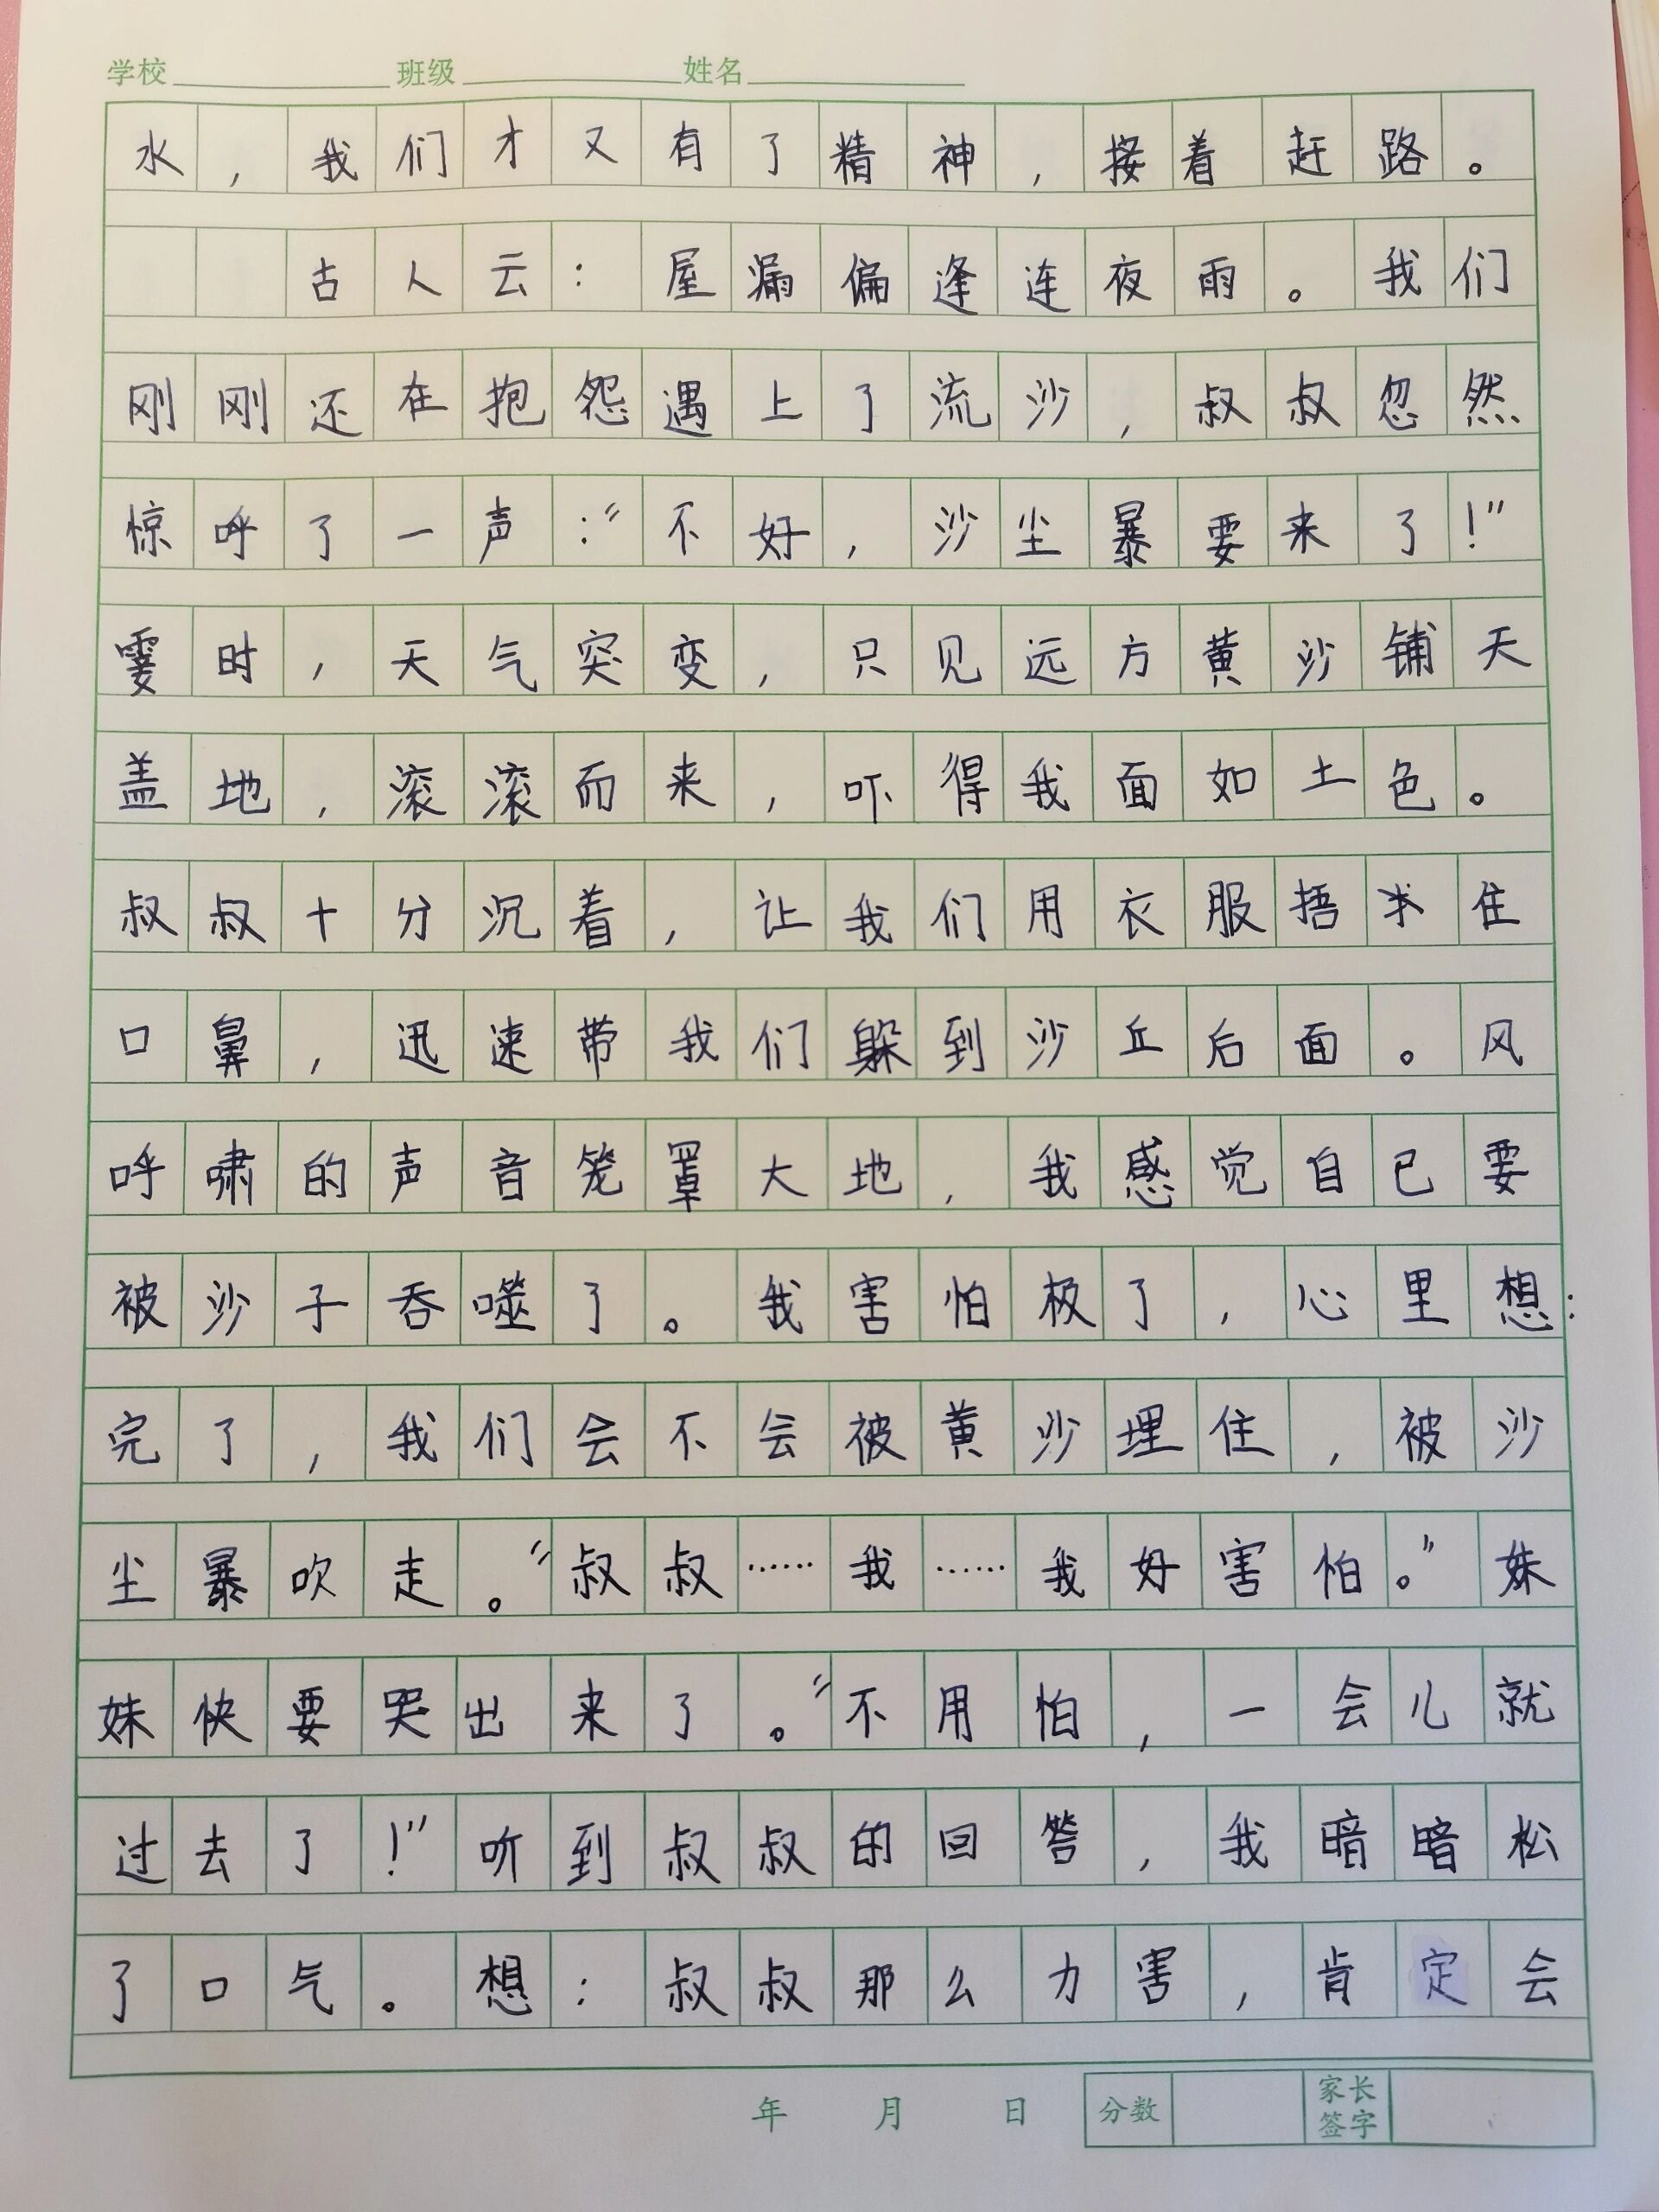 学校 班级 姓名
水，我们才又有了精神，接着赶路。
古人云：屋漏偏逢连夜雨。我们
刚刚还在抱怨遇上了流沙，叔叔忽然
惊呼了一声：“不好，沙尘暴要来了！”
霎时，天气突变，只见远方黄沙铺天
盖地，滚滚而来，吓得我面如土色。
叔叔十分沉着，让我们用衣服捂住
口鼻，迅速带我们躲到沙丘后面。风
呼啸的声音笼罩大地，我感觉自己要
被沙子吞噬了。我害怕极了，心里想：
完了，我们会不会被黄沙埋住，被沙
尘暴吹走。“叔叔……我……我好害怕。”妹
妹快要哭出来了。“不用怕，一会儿就
过去了！”听到叔叔的回答，我暗暗松
了口气。想：叔叔那么力害，肯定会
年 月 日 分数 家长签字